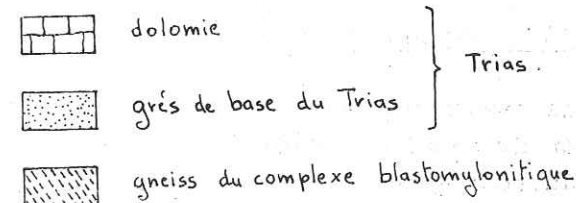 dolomie
Trias.
grés de base du Trias
gneiss du complexe blastomylonitique